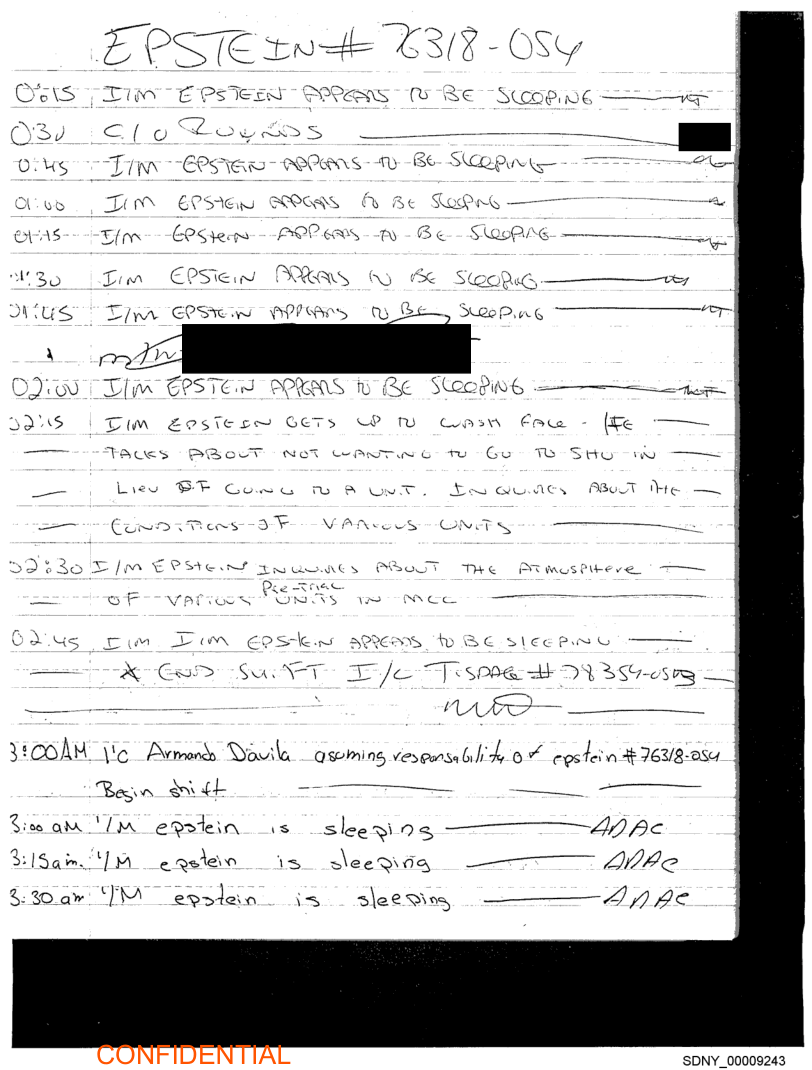 EPSTEIN # 76318-054
0:15 I/M EPSTEIN APPEARS TO BE SLEEPING
030 C/O ROUNDS
0:45 I/M EPSTEIN APPEARS TO BE SLEEPING
01:00 I/M EPSTEIN APPEARS TO BE SLEEPING
01:15 I/M EPSTEIN APPEARS TO BE SLEEPING
01:30 I/M EPSTEIN APPEARS TO BE SLEEPING
01:45 I/M EPSTEIN APPEARS TO BE SLEEPING
02:00 I/M EPSTEIN APPEARS TO BE SLEEPING
02:15 I/M EPSTEIN GETS UP TO WASH FACE - HE
TALKS ABOUT NOT WANTING TO GO TO SHU IN
LIEU OF GOING TO A UNIT. INQUIRES ABOUT THE
CONDITIONS OF VARIOUS UNITS
02:30 I/M EPSTEIN INQUIRES ABOUT THE ATMOSPHERE
OF VARIOUS PRE-TRIAL UNITS IN MCC
02:45 I/M I/M EPSTEIN APPEARS TO BE SLEEPING
* END SHIFT I/C #78354-
3:00AM I'C Armando Davila asuming responsability of epstein #76318-054
Begin shift
3:00 am I/M epstein is sleeping ADAC
3:15am. I/M epstein is sleeping ADAC
3:30 am I/M epstein is sleeping ADAC
CONFIDENTIAL
SDNY_00009243